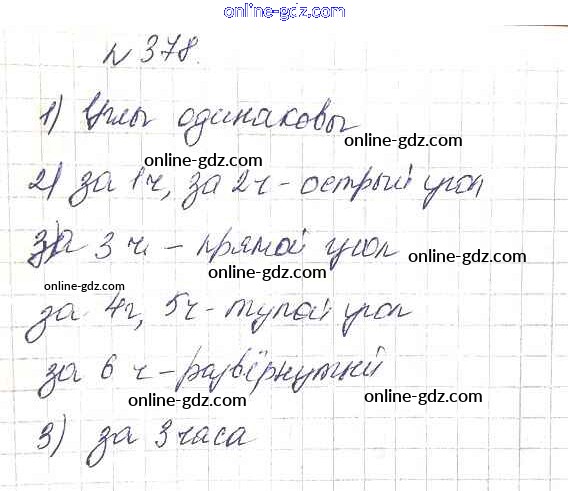 online-gdz.com
№ 378.
1) Углы одинаковы
online-gdz.com
online-gdz.com
2) за 1ч, за 2ч - острый угол
online-gdz.com
за 3 ч - прямой угол
online-gdz.com
online-gdz.com
за 4ч, 5ч - тупой угол
online-gdz.com
за 6 ч - развёрнутый
online-gdz.com
online-gdz.com
3) за 3 часа
online-gdz.com